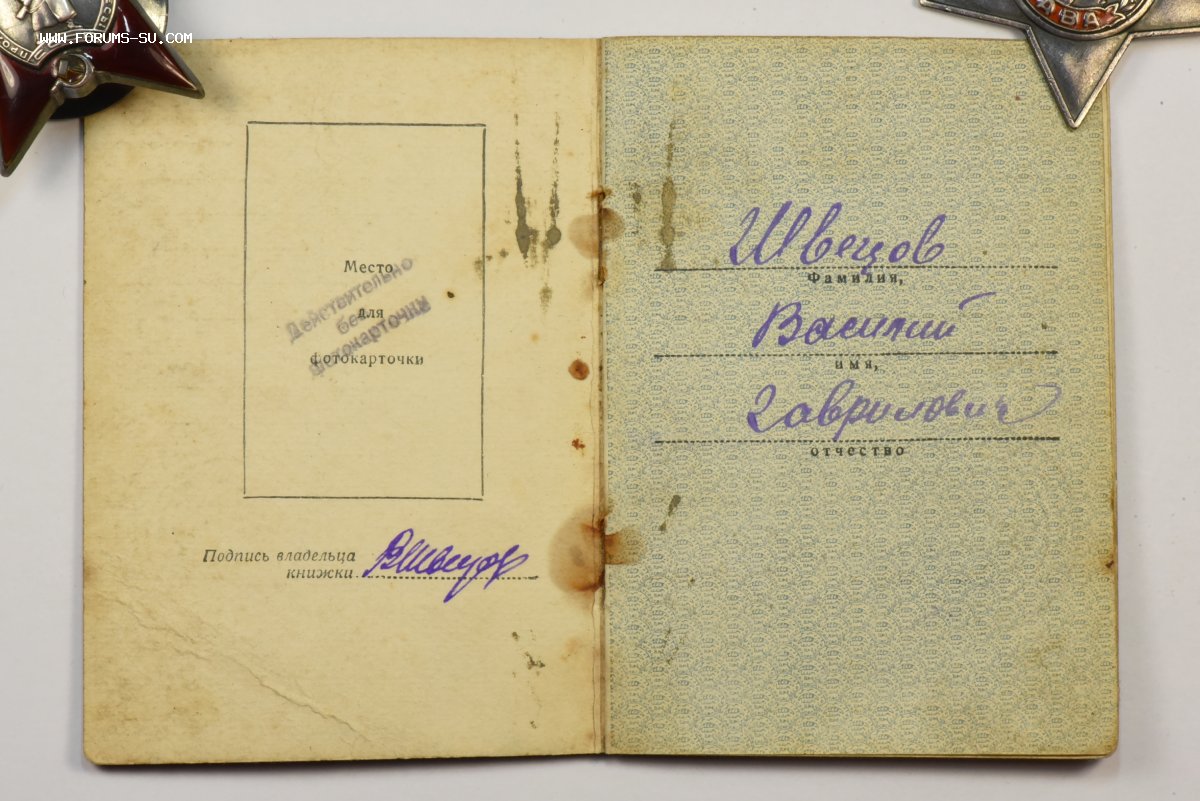 WWW.FORUMS-SU.COM
АВА
Место
для
фотокарточки
Действительно
без
фотокарточки
Подпись владельца
книжки
ВШвецов
Швецов
Фамилия,
Василий
имя,
Гаврилович
отчество